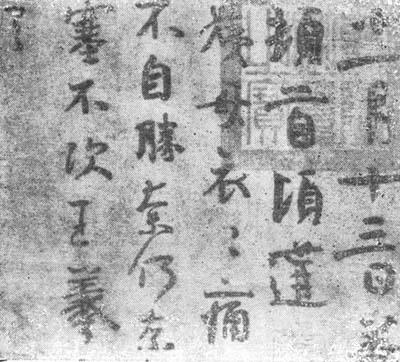 十一月十三日羲
頓首頃遘
姨母哀〻痛
不自勝奈何奈
塞不次王羲